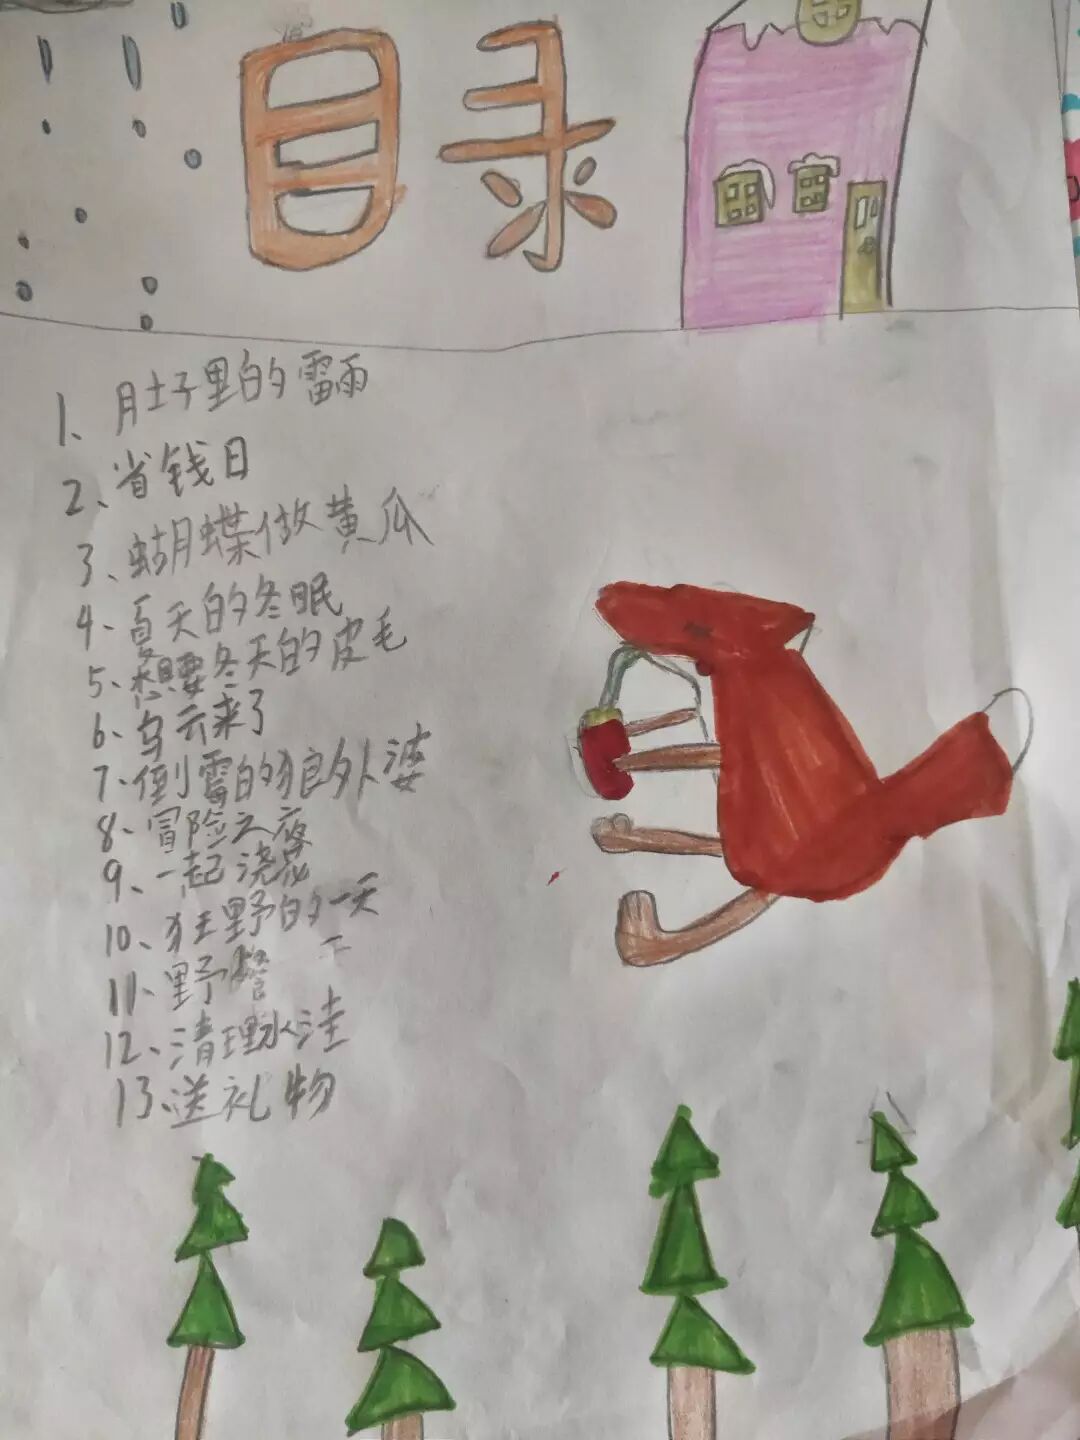 目录
1、肚子里的雷雨
2、省钱日
3、蝴蝶做黄瓜
4、夏天的冬眠
5、想要冬天的皮毛
6、乌云来了
7、倒霉的狼外婆
8、冒险之夜
9、一起浇花
10、狂野的一天
11、野餐
12、清理水洼
13、送礼物